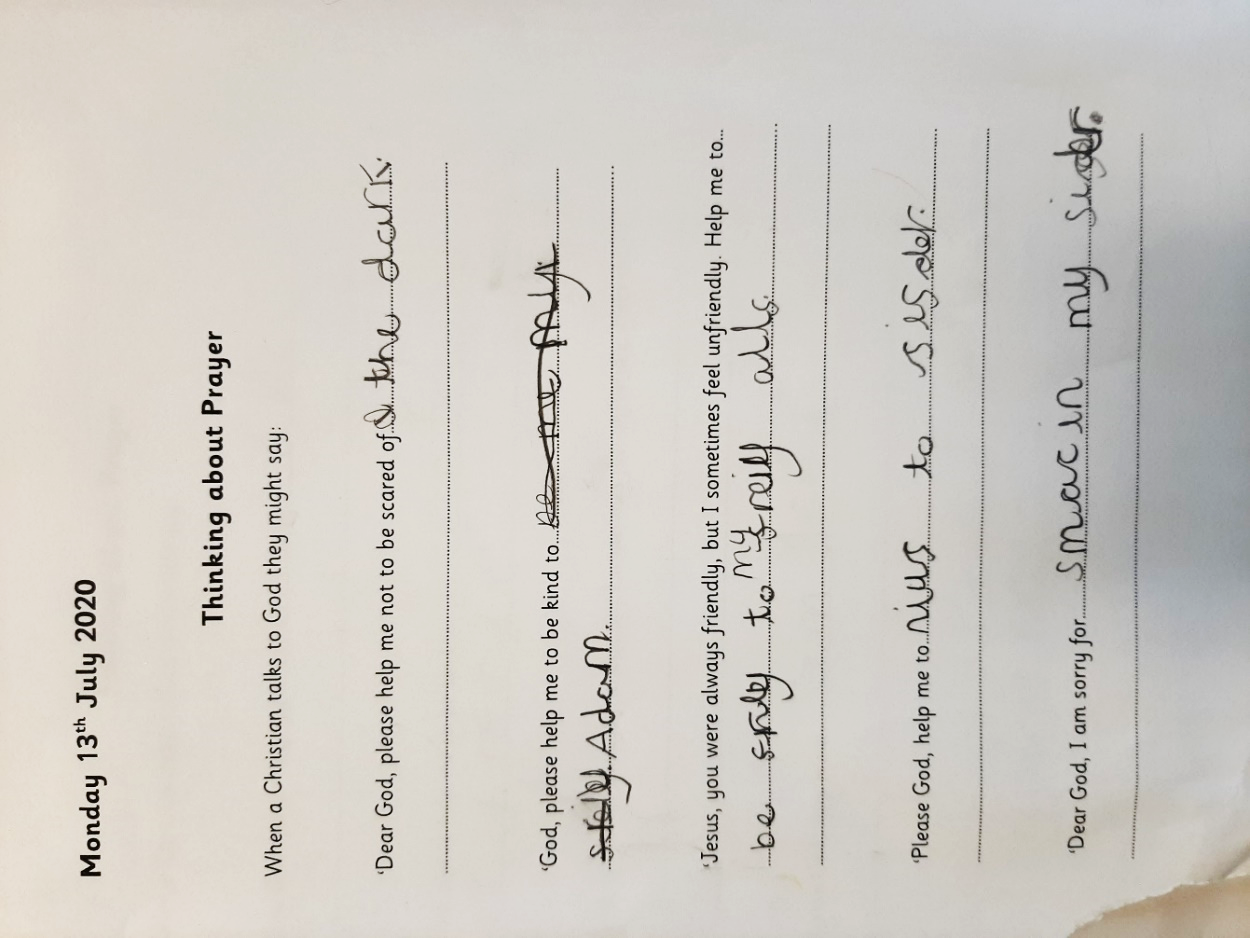 Monday 13th July 2020
Thinking about Prayer
When a Christian talks to God they might say:
'Dear God, please help me not to be scared of the dark.
'God, please help me to be kind to
Adam.
'Jesus, you were always friendly, but I sometimes feel unfriendly. Help me to...
be to my
'Please God, help me to nius to sisder.
'Dear God, I am sorry for smac in my sisder.